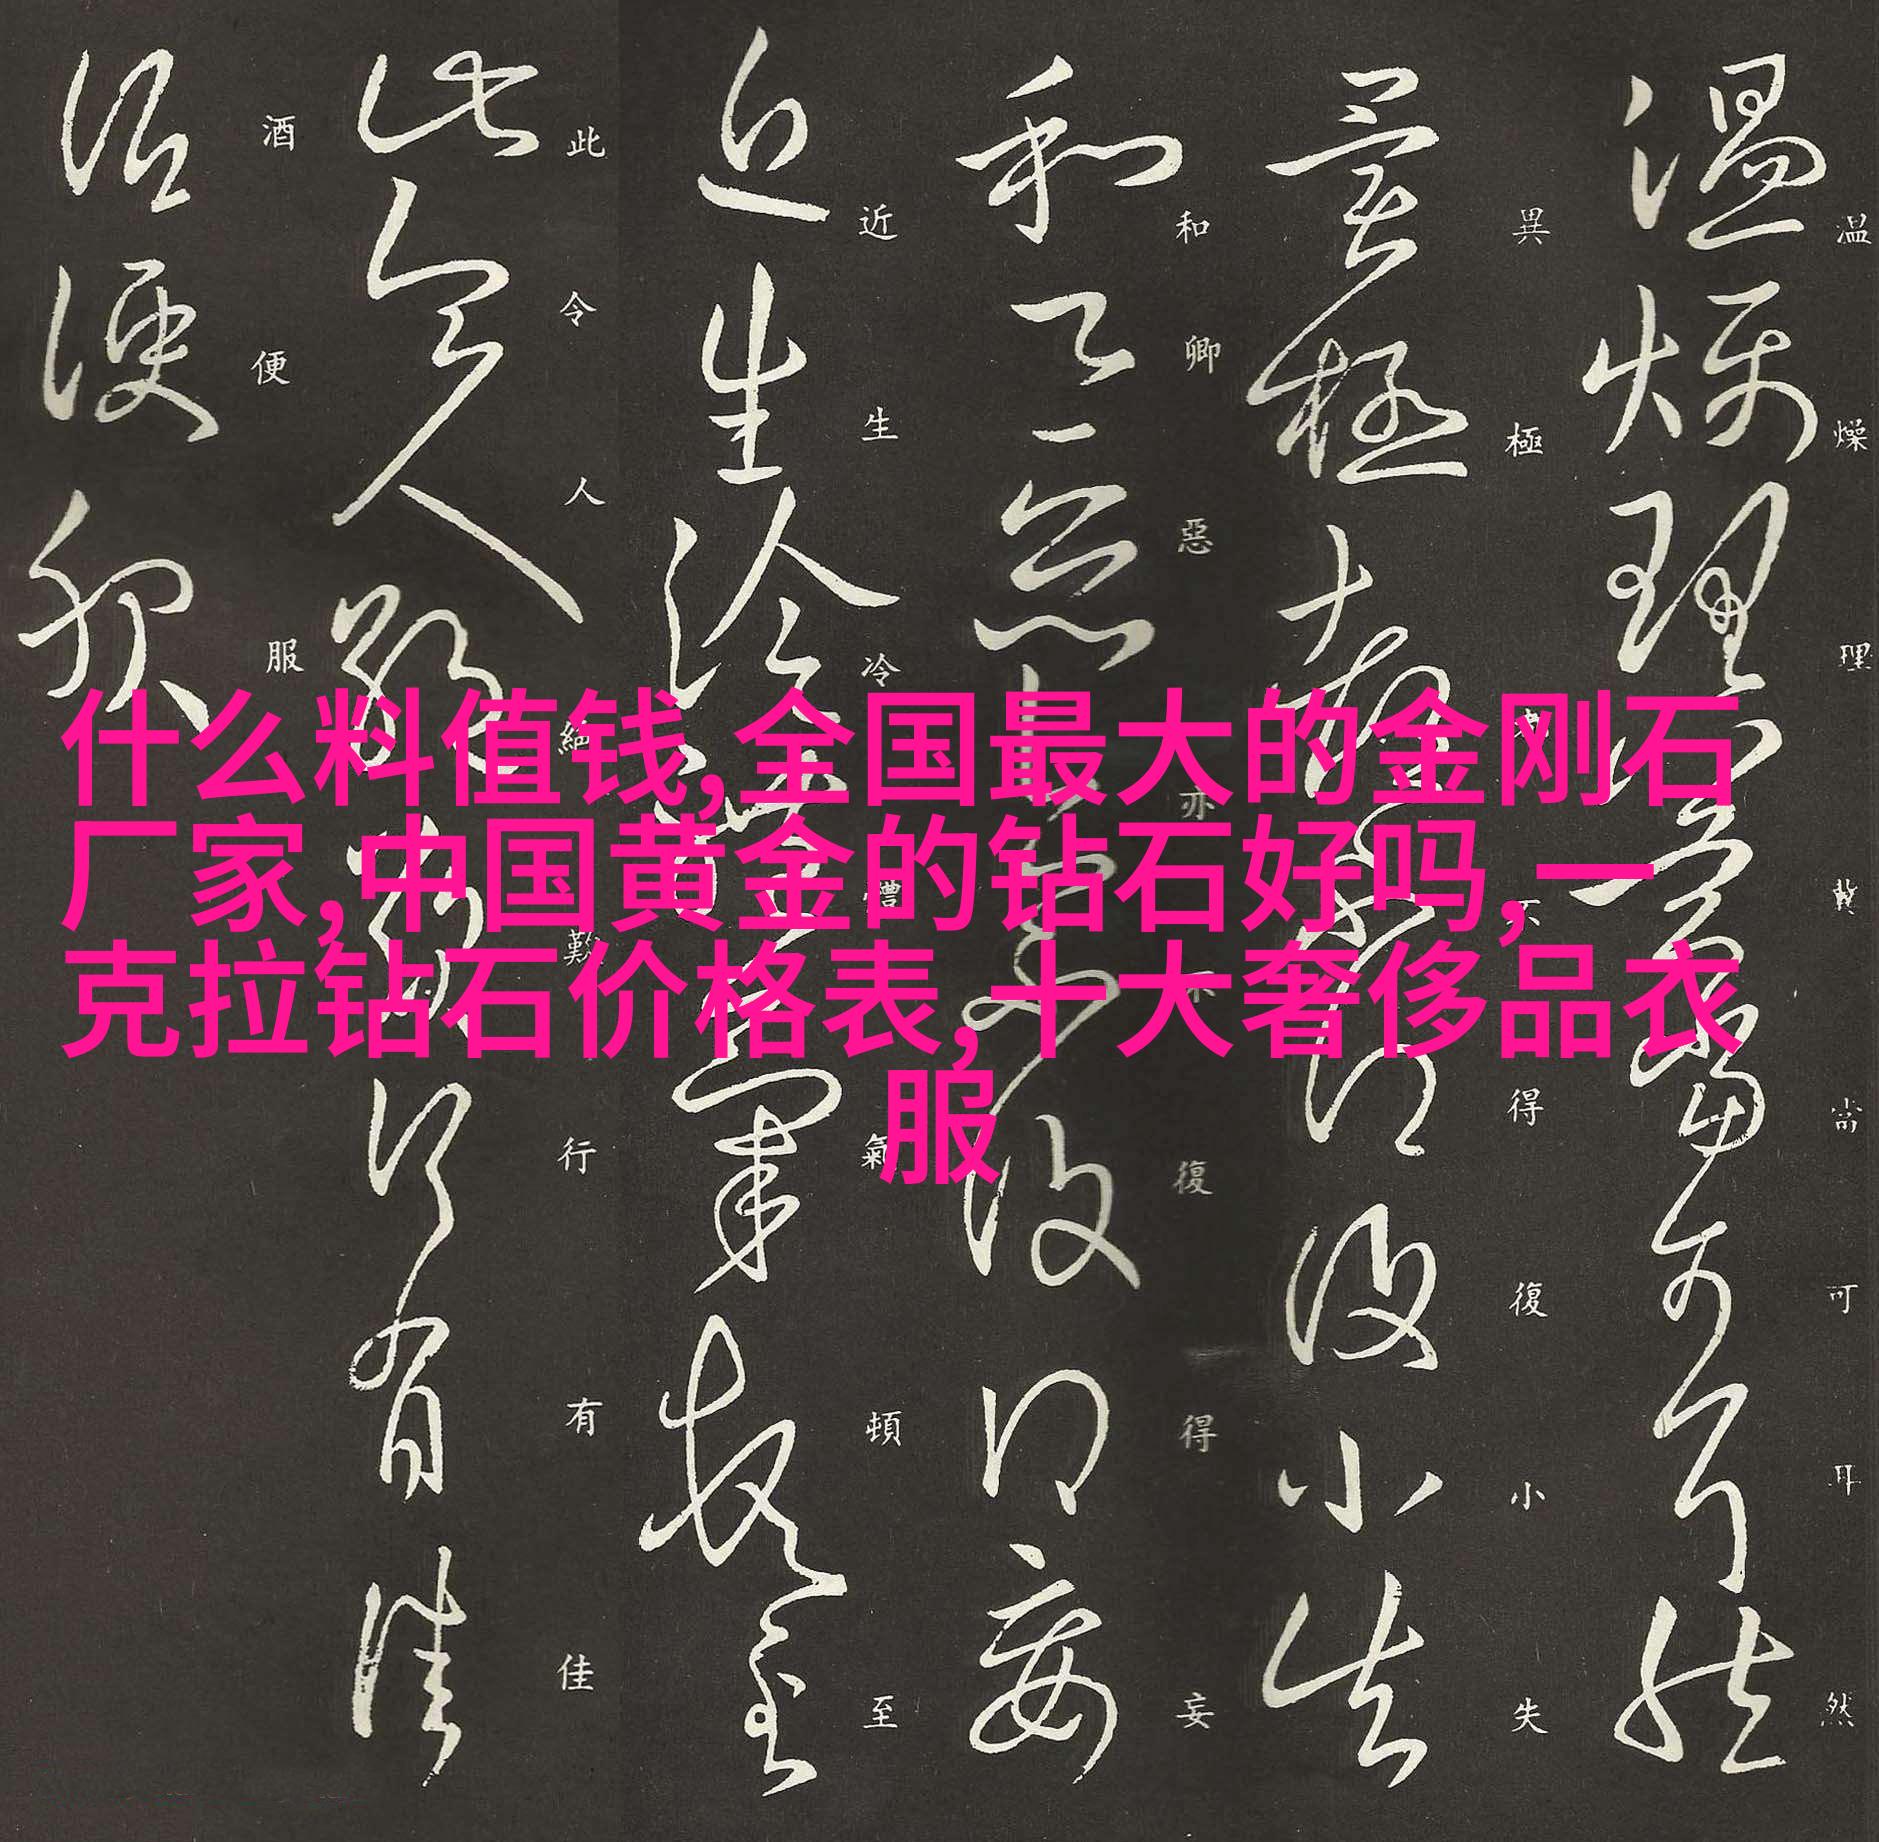 什么料值钱,全国最大的金刚石
厂家,中国黄金的钻石好吗,一
克拉钻石价格表,十大奢侈品衣
服
温燥理冀當可耳然
異極不得復小失
和卿惡亦不復得妄
近生冷體氣頓至
此令人絕歎行有佳
酒便服